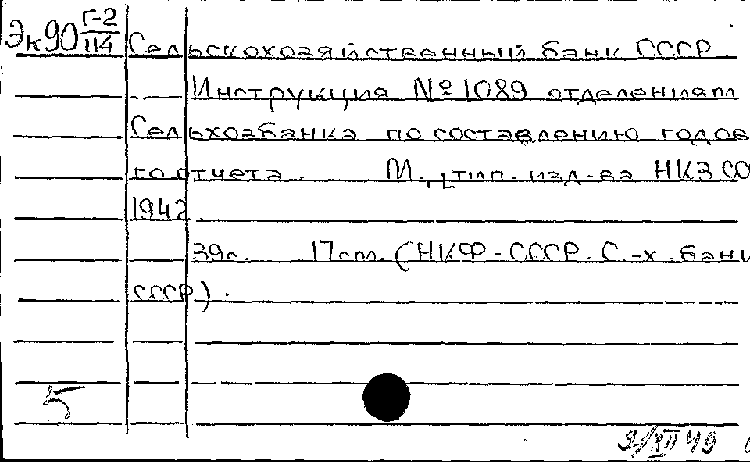 Эк90 Г-2/114 Сельскохозяйственный банк СССР
Инструкция №1089 отделениям
Сельхозбанка по составлению годов
го отчета М., тип. изд-ва НКЗ СО
1942
39с. 17см. (НКФ-СССР. С.-х. банк
СССР).
5
9/XII 49